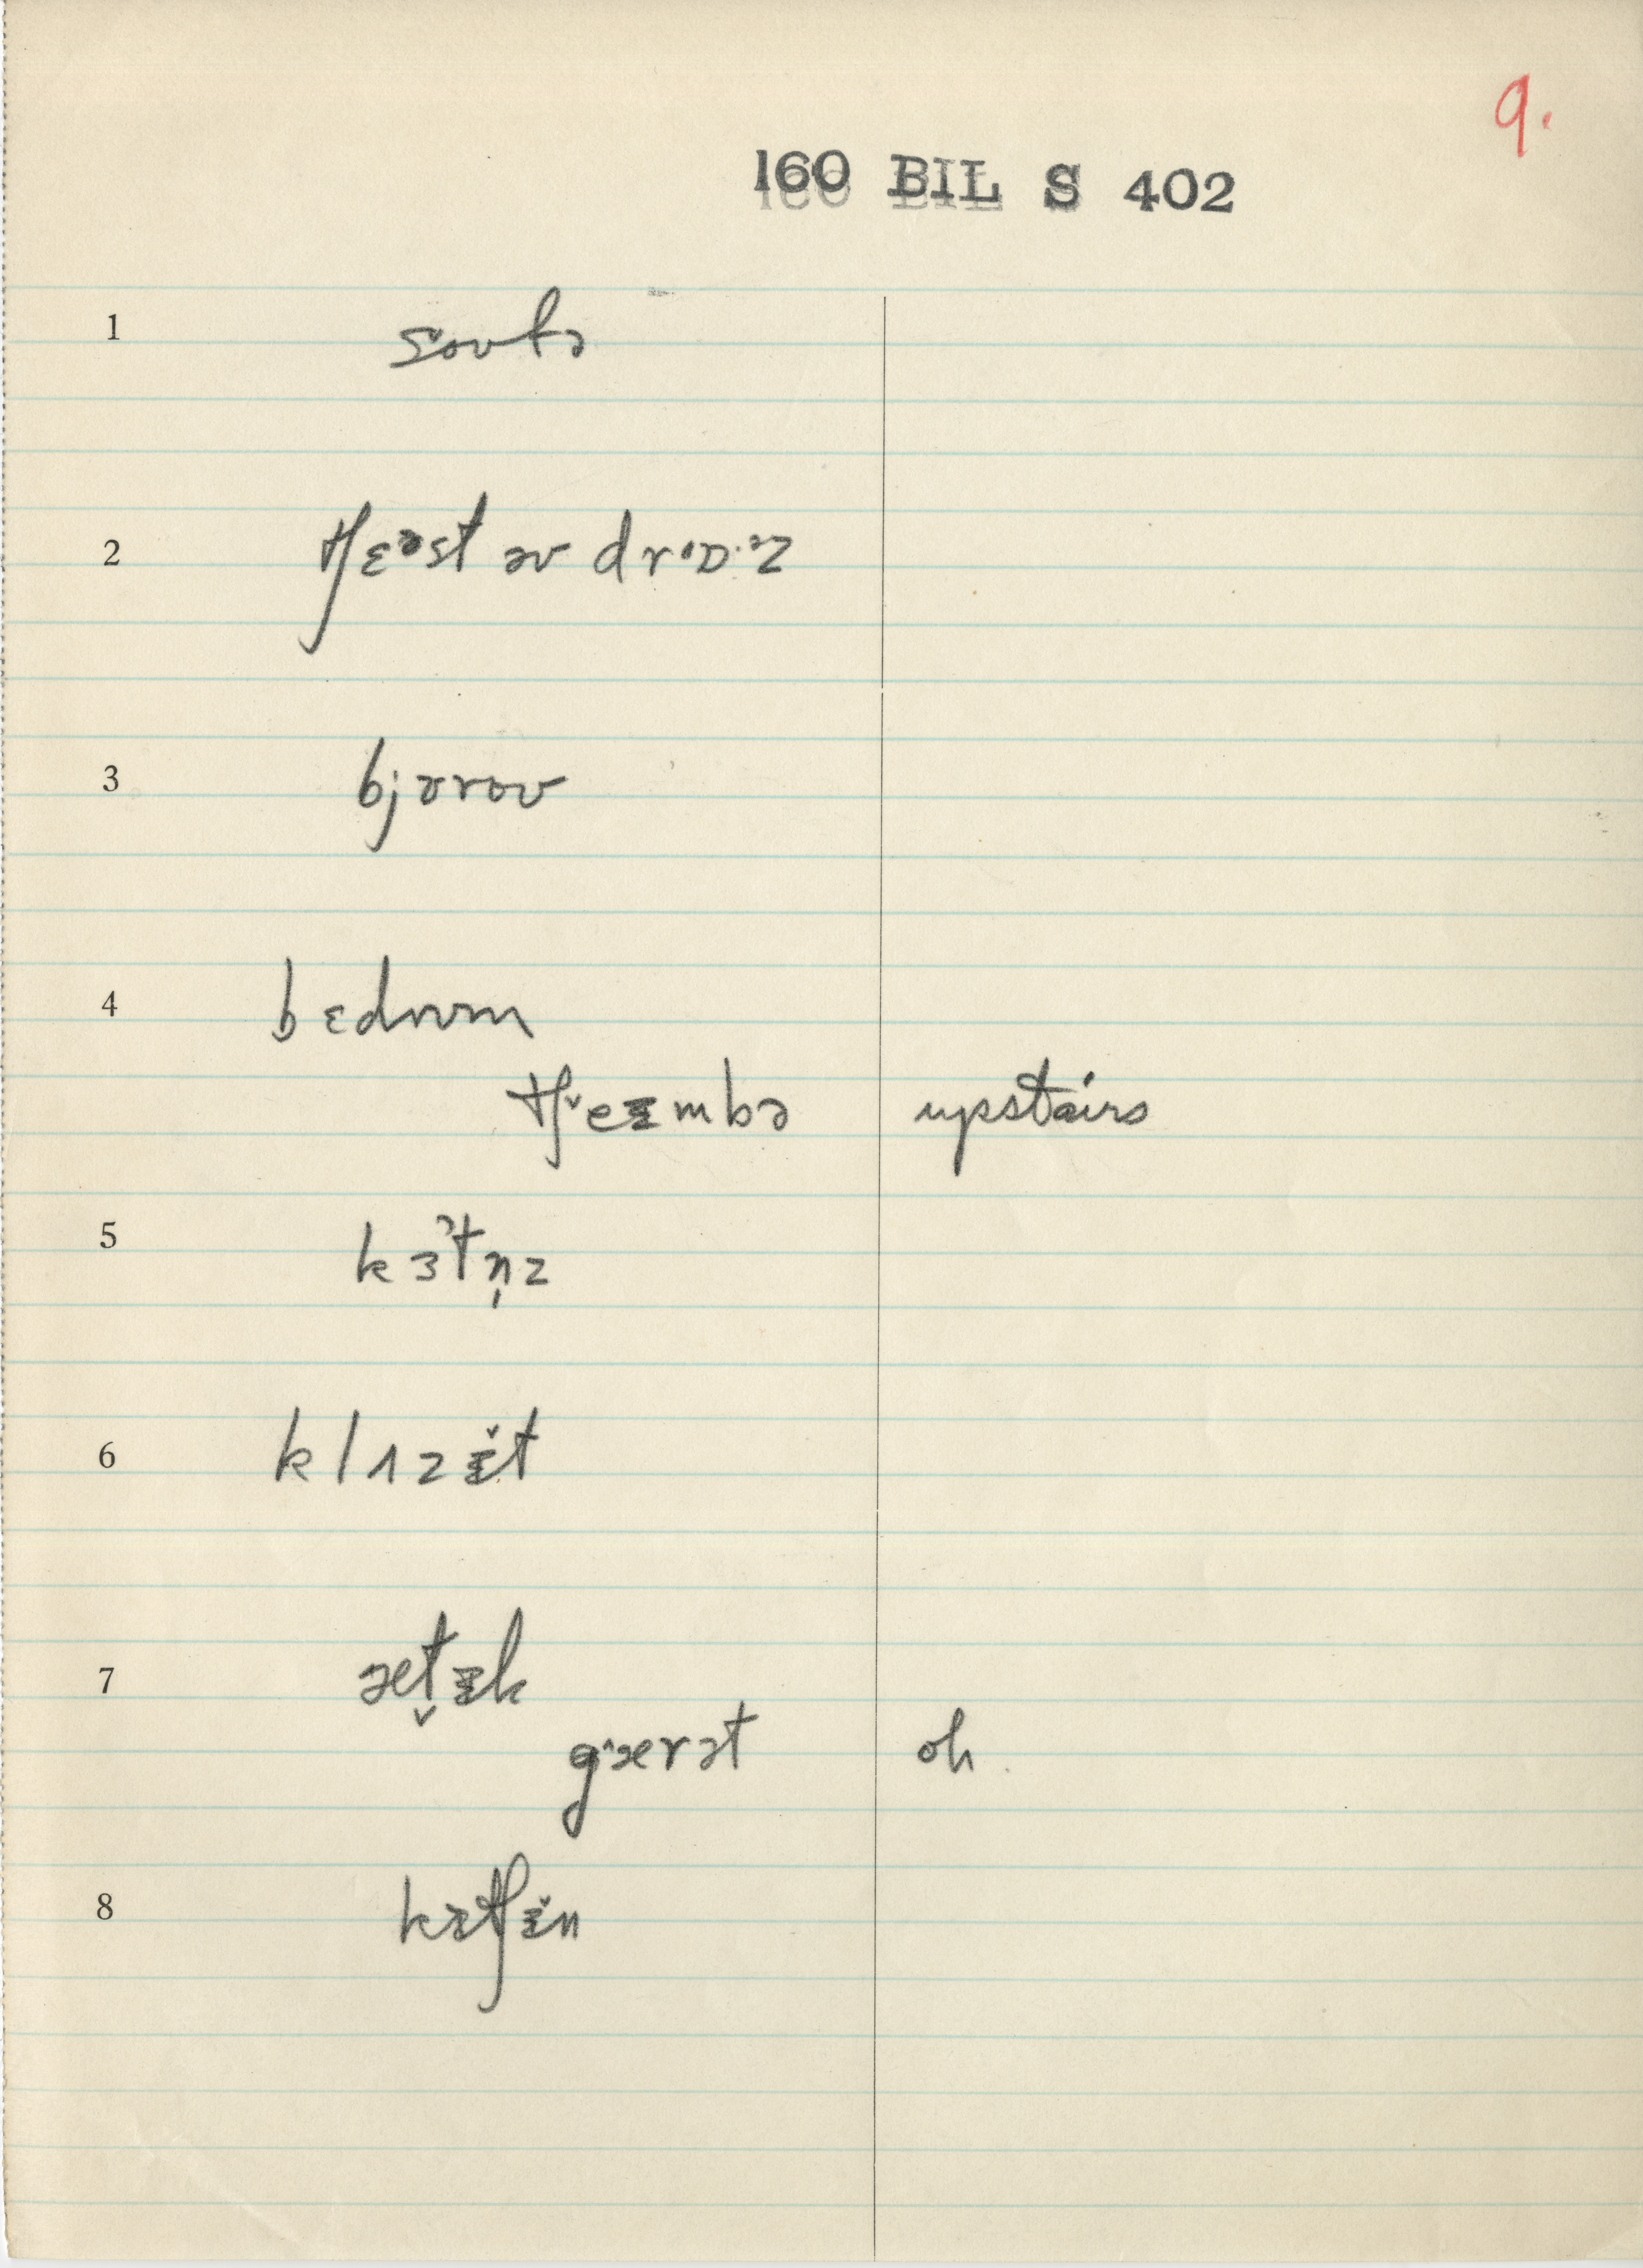 9.
160 BIL S 402
1 soʊfə
2 tʃɛᵊst əv drɒ·ᵊz
3 bjɜroʊ
4 bɛdrʊm
tʃˇeɪmbə upstairs
5 kɜᵊtn̩z
6 klɑzɪ̌t
7 æt̬ɪk
gˈærət oh
8 kɪtʃɪ̌n